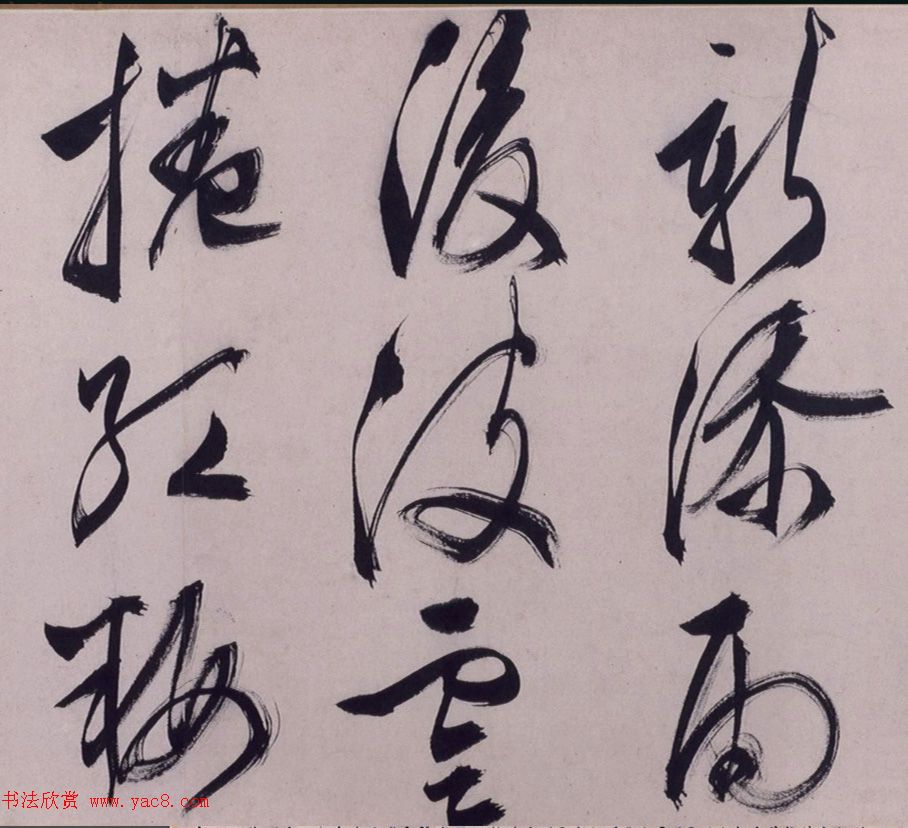 新添雨
後波雲
捲紅梅
书法欣赏 www.yac8.com